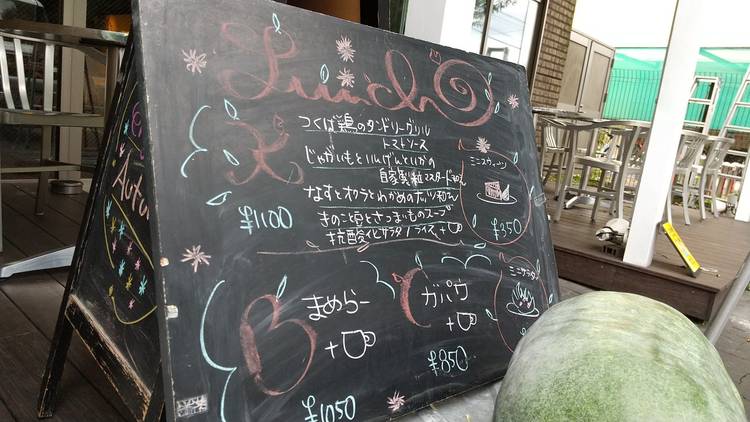 Lunch
A
つくば鶏のタンドリーグリル
トマトソース
じゃがいもといんげんといかの
自家製粒マスタード和え
なすとオクラとわかめのポン酢和え
きのこと豆とさつまいものスープ
抗酸化サラダ/ライス+
¥1100
ミニスウィーツ
¥350
B
まめらー
+
¥1050
C
ガパウ
+
¥850
ミニサラダ
Autu